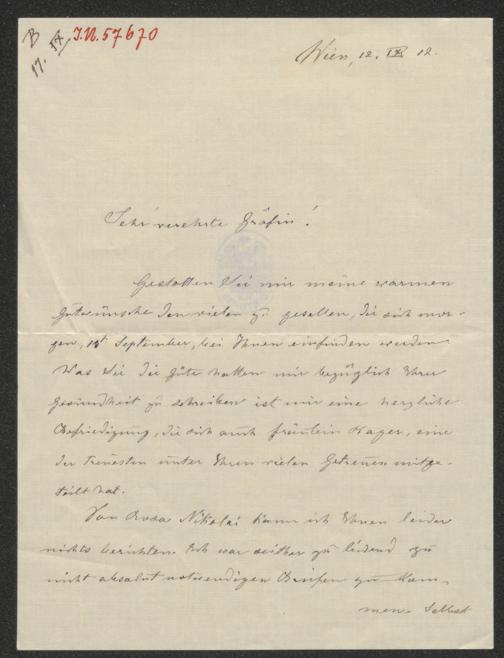 B
17. IX
I.N. 57670
Wien, 12. IX 12.
Sehr verehrte Gräfin!
Gestatten Sie mir meine warmen
Gutwünsche den vielen zu gesellen, die sich mor-
gen, 13t September, bei Ihnen einfinden werden
Was Sie die Güte hatten mir bezüglich Ihrer
Gesundheit zu schreiben ist mir eine herzliche
Befriedigung, die sich auch Fräulein Hager, eine
der treuesten unter Ihren vielen Getreuen mitge-
teilt hat.
Von Rosa Nikolai kann ich Ihnen leider
nichts berichten. Ich war seither zu leidend zu
nicht absolut notwendigen Briefen zu kom-
men. Selbst